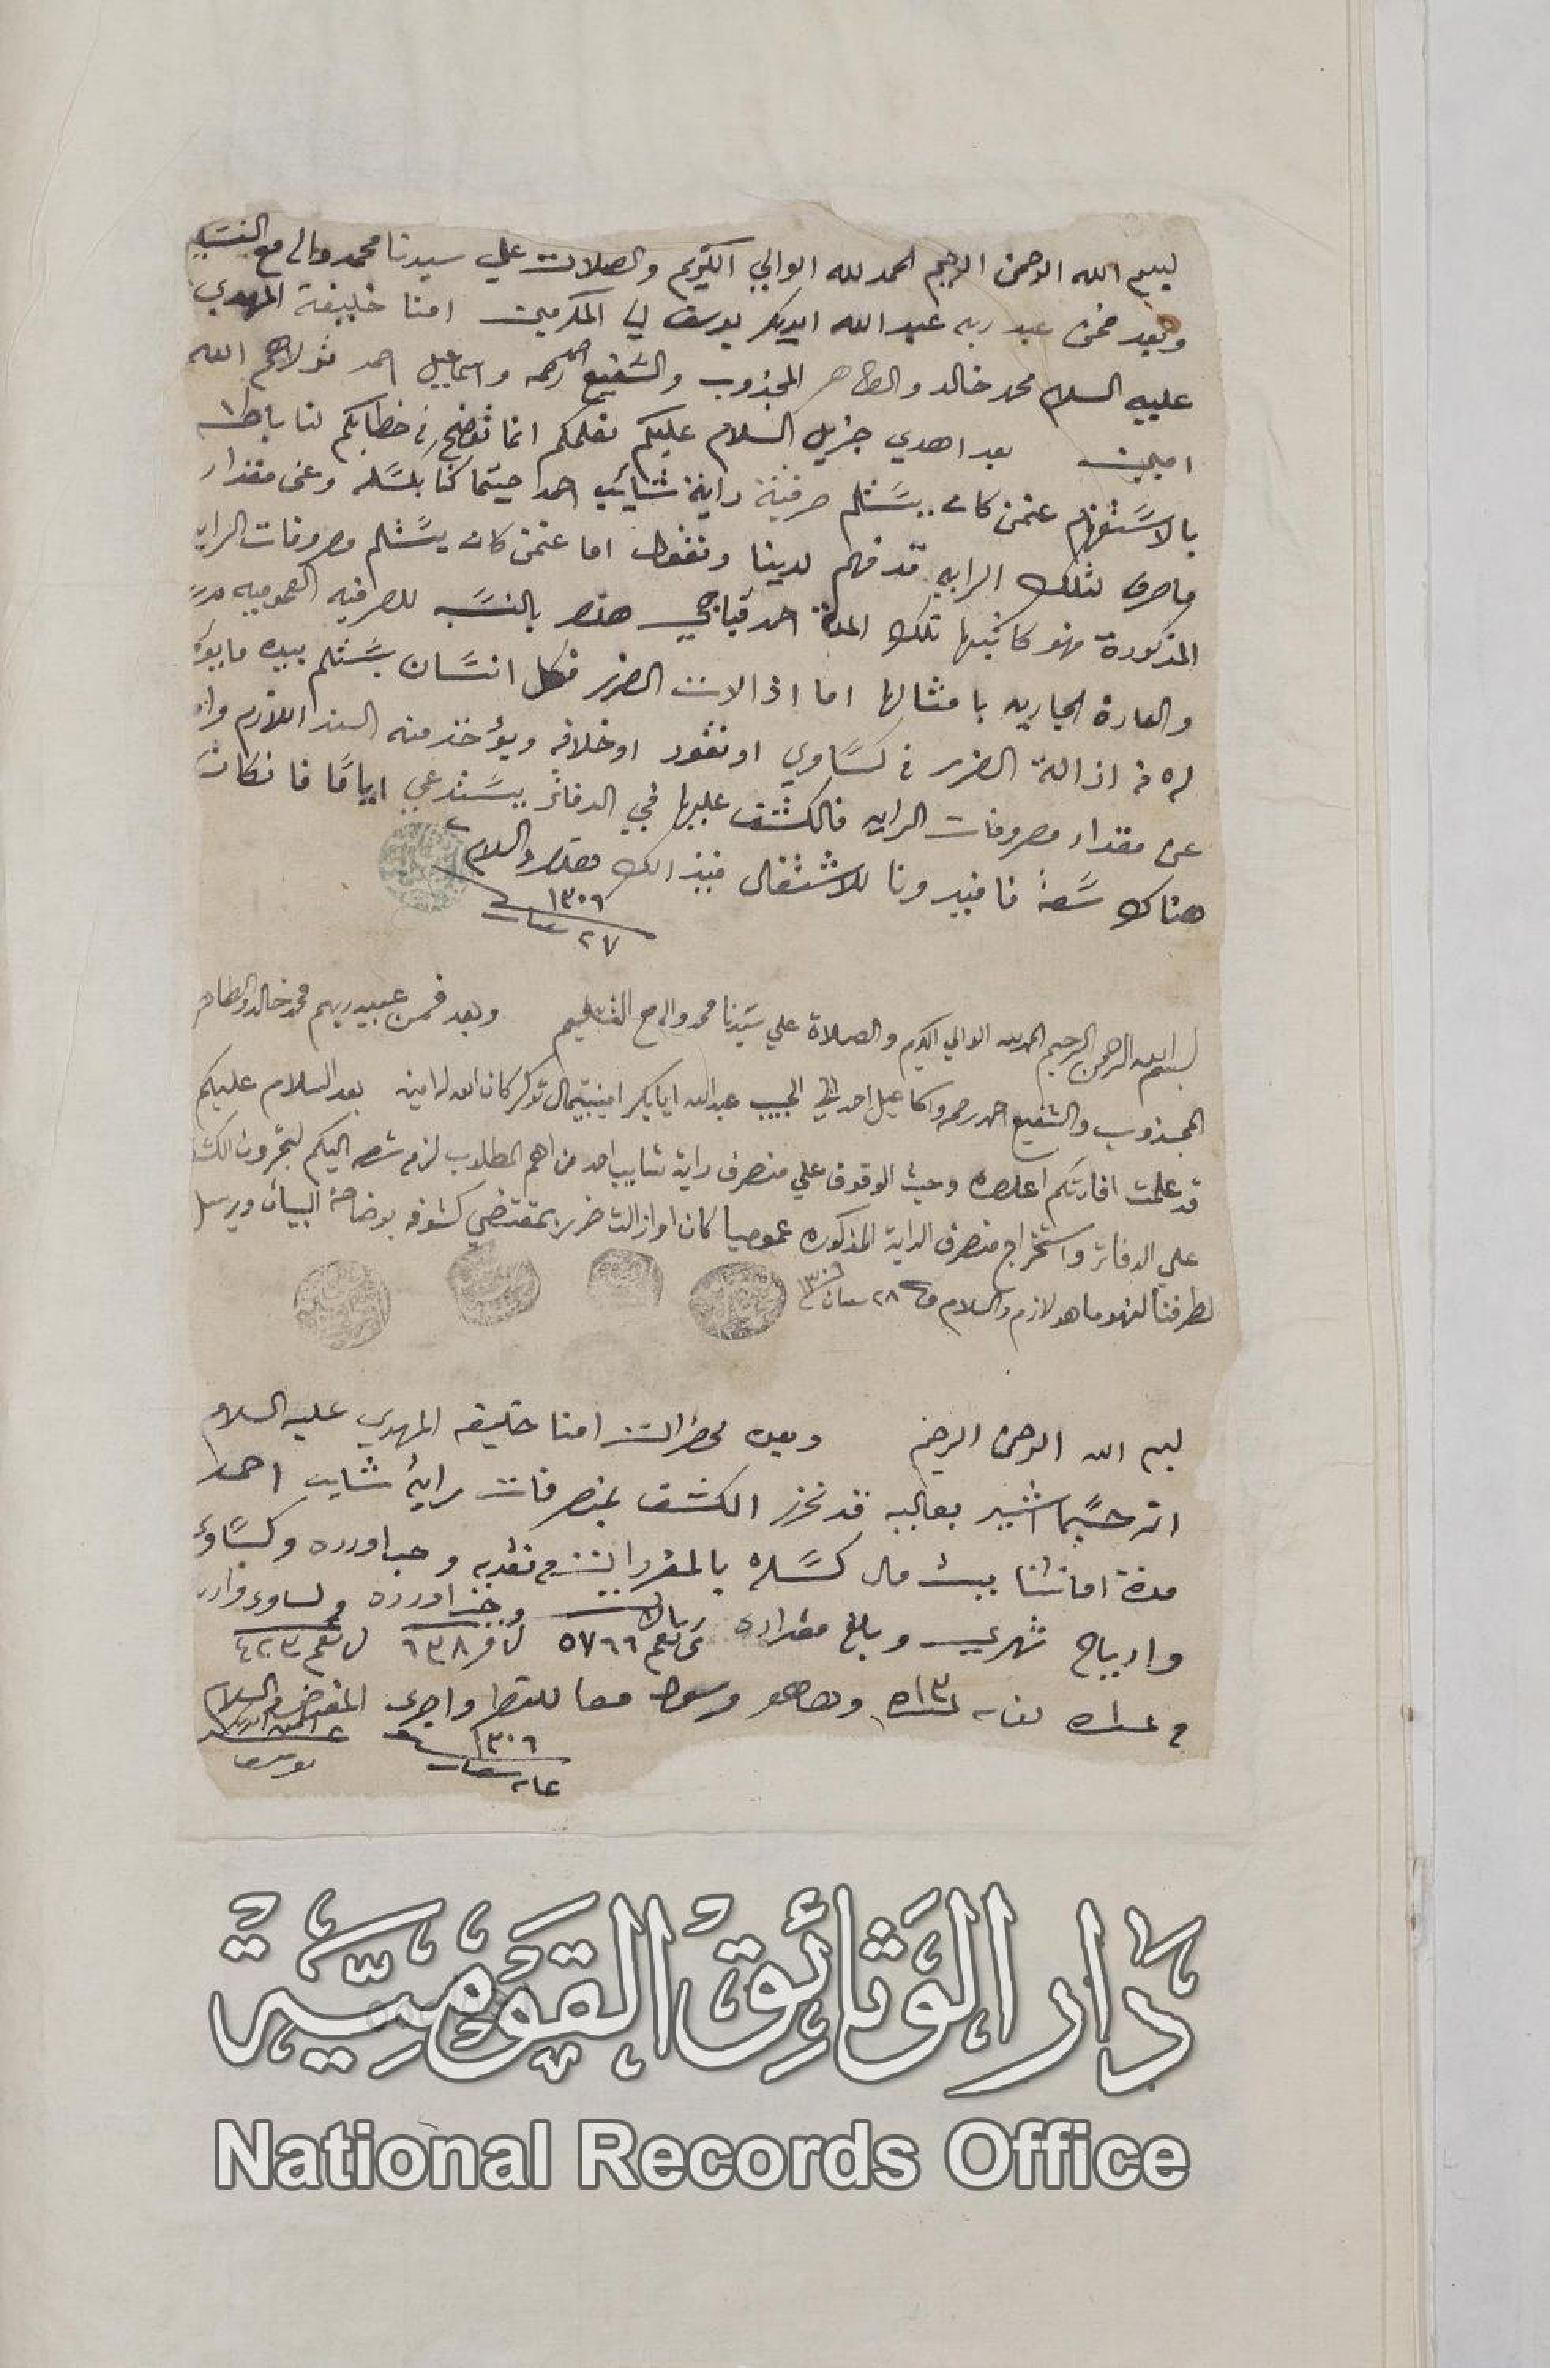 بسم الله الرحمن الرحيم الحمد لله الوالي الكريم والصلات علي سيدنا محمد واله مع التسليم
وبعد فمن عبد ربه عبد الله ابوبكر يوسف الي المكرمين امنا خليفة المهدي
عليه السلام محمد خالد والطاهر المجذوب والشفيع احمد رحمه واسماعيل احمد تولاهم الله
امين بعد اهدي جزيل السلام عليكم نعلمكم انما توضح في خطابكم لنا باطنه
بالاستفهام عتمن كان يستلم صرفية راية شايب احمد حيثما كنا بكسله وعن مقدار
ماصرف لتلك الرايه قد فهم لدينا ونقول اما عتمن كان يستلم مصروفات الرايه
المذكورة فهو كاتبها تلك المدة احمد قباجي هذا بالنسبه للصرفيه العموميه
والعادة الجاريه بامثالها اما اذالات الضرر فكل انسان يستلم بيده ما
له في اذالة الضرر في كساوي او نقود او خلافه ويؤخذ منه السند اللازم واما
عن مقدار مصروفات الرايه فالكشف عليها في الدفاتر يستدعي اياما فانكانت
هناك سعة فافيدونا للاشتغال فيذالك والسلام
١٣٠٦
٢٧
بسم الله الرحمن الرحيم الحمد لله الوالي الكريم والصلاة علي سيدنا محمد واله مع التسليم وبعد فمن عبيد ربهم محمد خالد والطاهر
المجذوب والشفيع احمد رحمه واسماعيل احمد الي الحبيب عبد الله ابابكر امين بيتمال توكر كان الله له امين بعد السلام عليكم
قد علمت افادتكم اعلاه وحيث الوقوف علي منصرف راية شايب احمد من اهم المطلوب لزم شرحه اليكم لتجرون الكشف
علي الدفاتر واستخراج منصرف الراية المذكوره عموميا كان او ازالت ضرر بمقتضي كشوفه بوضاحة البيان ويرسل
لطرفنا لنهو ما هو لازم والسلام في ٢٨ شعبان ١٣٠٦
بسم الله الرحمن الرحيم وبعده فحضرات امنا خليفه المهدي عليه السلام
انه حسبما اشير بعاليه قد نحرر الكشف بمنصرفات راية شايب احمد
مدة امانتنا ببيت مال كسله بالمقررات نقديه وحب اورده وكساوي
وارباح شهري وبلغ مقداره ريالات ٥٧٦٦ ٦٣٨ ٤٢٣
والسلام
١٣٠٦
يوسف
دَار الوَثائِق القَوْمِيَّة
National Records Office